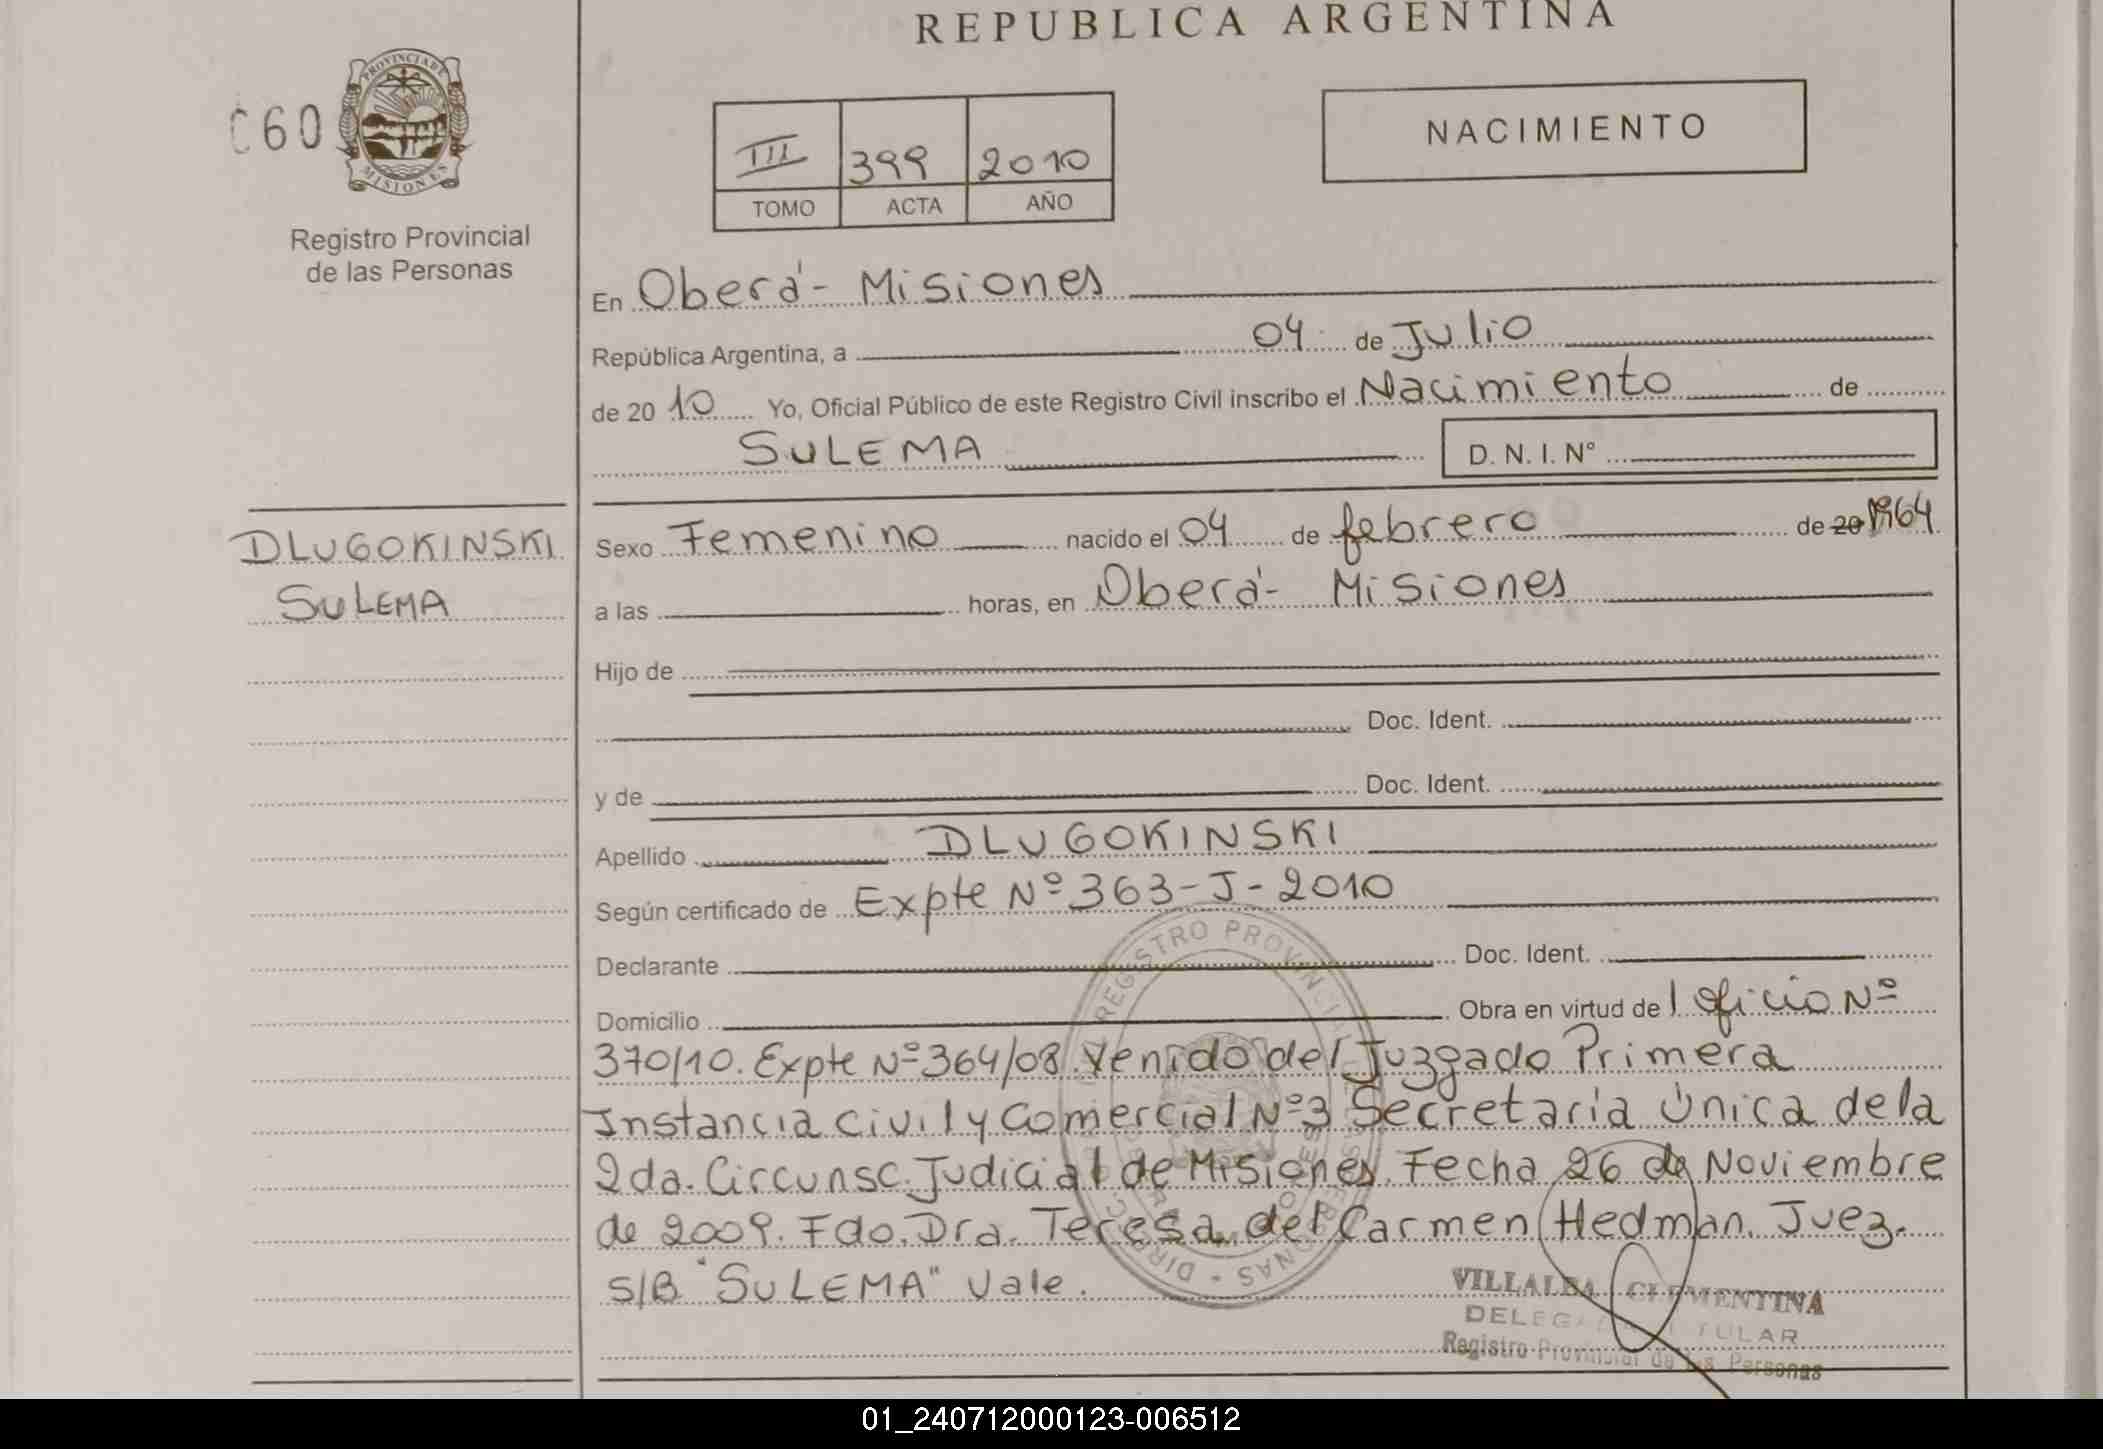 REPUBLICA ARGENTINA
C60
PROVINCIA DE
MISIONES
Registro Provincial
de las Personas
III 399 2010
TOMO ACTA AÑO
NACIMIENTO
En Oberá - Misiones
República Argentina, a 04 de Julio
de 2010 Yo, Oficial Público de este Registro Civil inscribo el Nacimiento de
SULEMA D. N. I. Nº
DLUGOKINSKI
SULEMA
Sexo Femenino nacido el 04 de febrero de 20 1964
a las horas, en Oberá - Misiones
Hijo de
Doc. Ident.
y de Doc. Ident.
Apellido DLUGOKINSKI
Según certificado de Expte Nº 363-J-2010
Declarante Doc. Ident.
Domicilio Obra en virtud de 1 oficio Nº
370/10. Expte Nº 364/08. Venido del Juzgado Primera
Instancia Civil y Comercial Nº 3 Secretaría Única de la
2da. Circunsc. Judicial de Misiones. Fecha 26 de Noviembre
de 2009. Fdo. Dra. Teresa del Carmen Hedman. Juez.
S/B "SULEMA" Vale.
REGISTRO PROVINCIAL
VILLALBA CLEMENTINA
Registro Provincial de las Personas
01_240712000123-006512